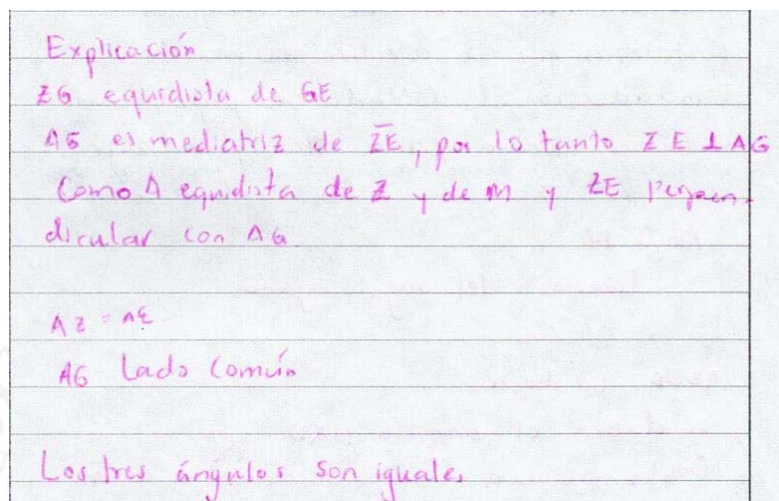 Explicación
ZG equidista de GE
AG es mediatriz de ZE, por lo tanto ZE ⊥ AG
Como A equidista de Z y de M y ZE perpen-
dicular con AG.
AZ = AE
AG Lado Común
Los tres ángulos son iguales